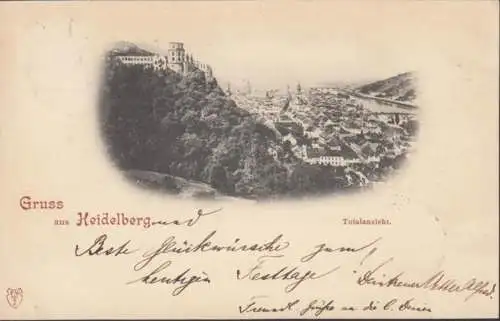 Gruss
aus Heidelberg und
Totalansicht.
Beste Glückwünsche zum
heutigen Festtage
Grüsse an die l. Deinen